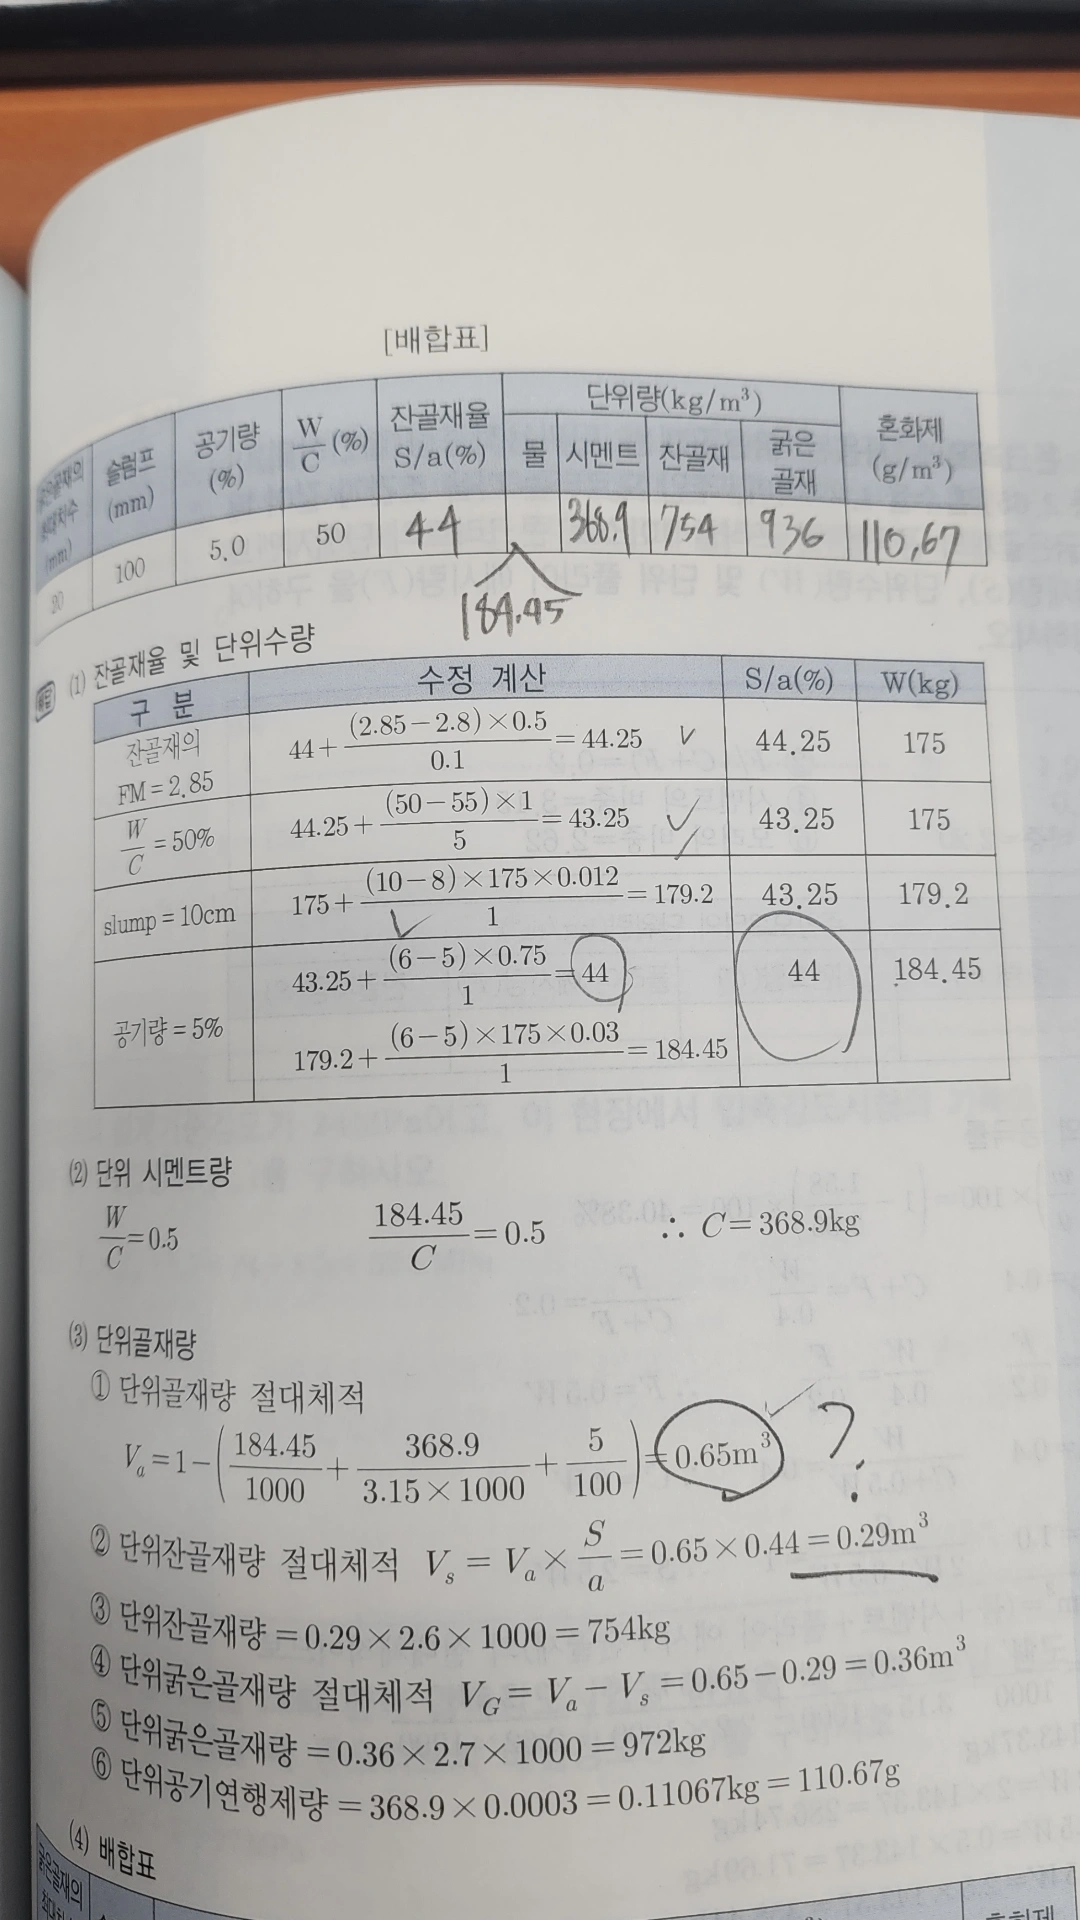 [배합표]
굵은골재의 최대치수 (mm) 슬럼프 (mm) 공기량 (%) W/C (%) 잔골재율 S/a(%) 단위량(kg/m³) 혼화제 (g/m³)
물 시멘트 잔골재 굵은 골재
20 100 5.0 50 44 184.45 368.9 754 936 110.67
해답 (1) 잔골재율 및 단위수량
구 분 수정 계산 S/a(%) W(kg)
잔골재의 FM=2.85 44+(2.85-2.8)×0.5/0.1=44.25 44.25 175
W/C=50% 44.25+(50-55)×1/5=43.25 43.25 175
slump=10cm 175+(10-8)×175×0.012/1=179.2 43.25 179.2
공기량=5% 43.25+(6-5)×0.75/1=44 44 184.45
179.2+(6-5)×175×0.03/1=184.45
(2) 단위 시멘트량
W/C=0.5 184.45/C=0.5 ∴ C=368.9kg
(3) 단위골재량
① 단위골재량 절대체적
Va=1-(184.45/1000+368.9/3.15×1000+5/100)=0.65m³ ?
② 단위잔골재량 절대체적 Vs=Va×S/a=0.65×0.44=0.29m³
③ 단위잔골재량=0.29×2.6×1000=754kg
④ 단위굵은골재량 절대체적 VG=Va-Vs=0.65-0.29=0.36m³
⑤ 단위굵은골재량=0.36×2.7×1000=972kg
⑥ 단위공기연행제량=368.9×0.0003=0.11067kg=110.67g
(4) 배합표
굵은골재의 최대치수